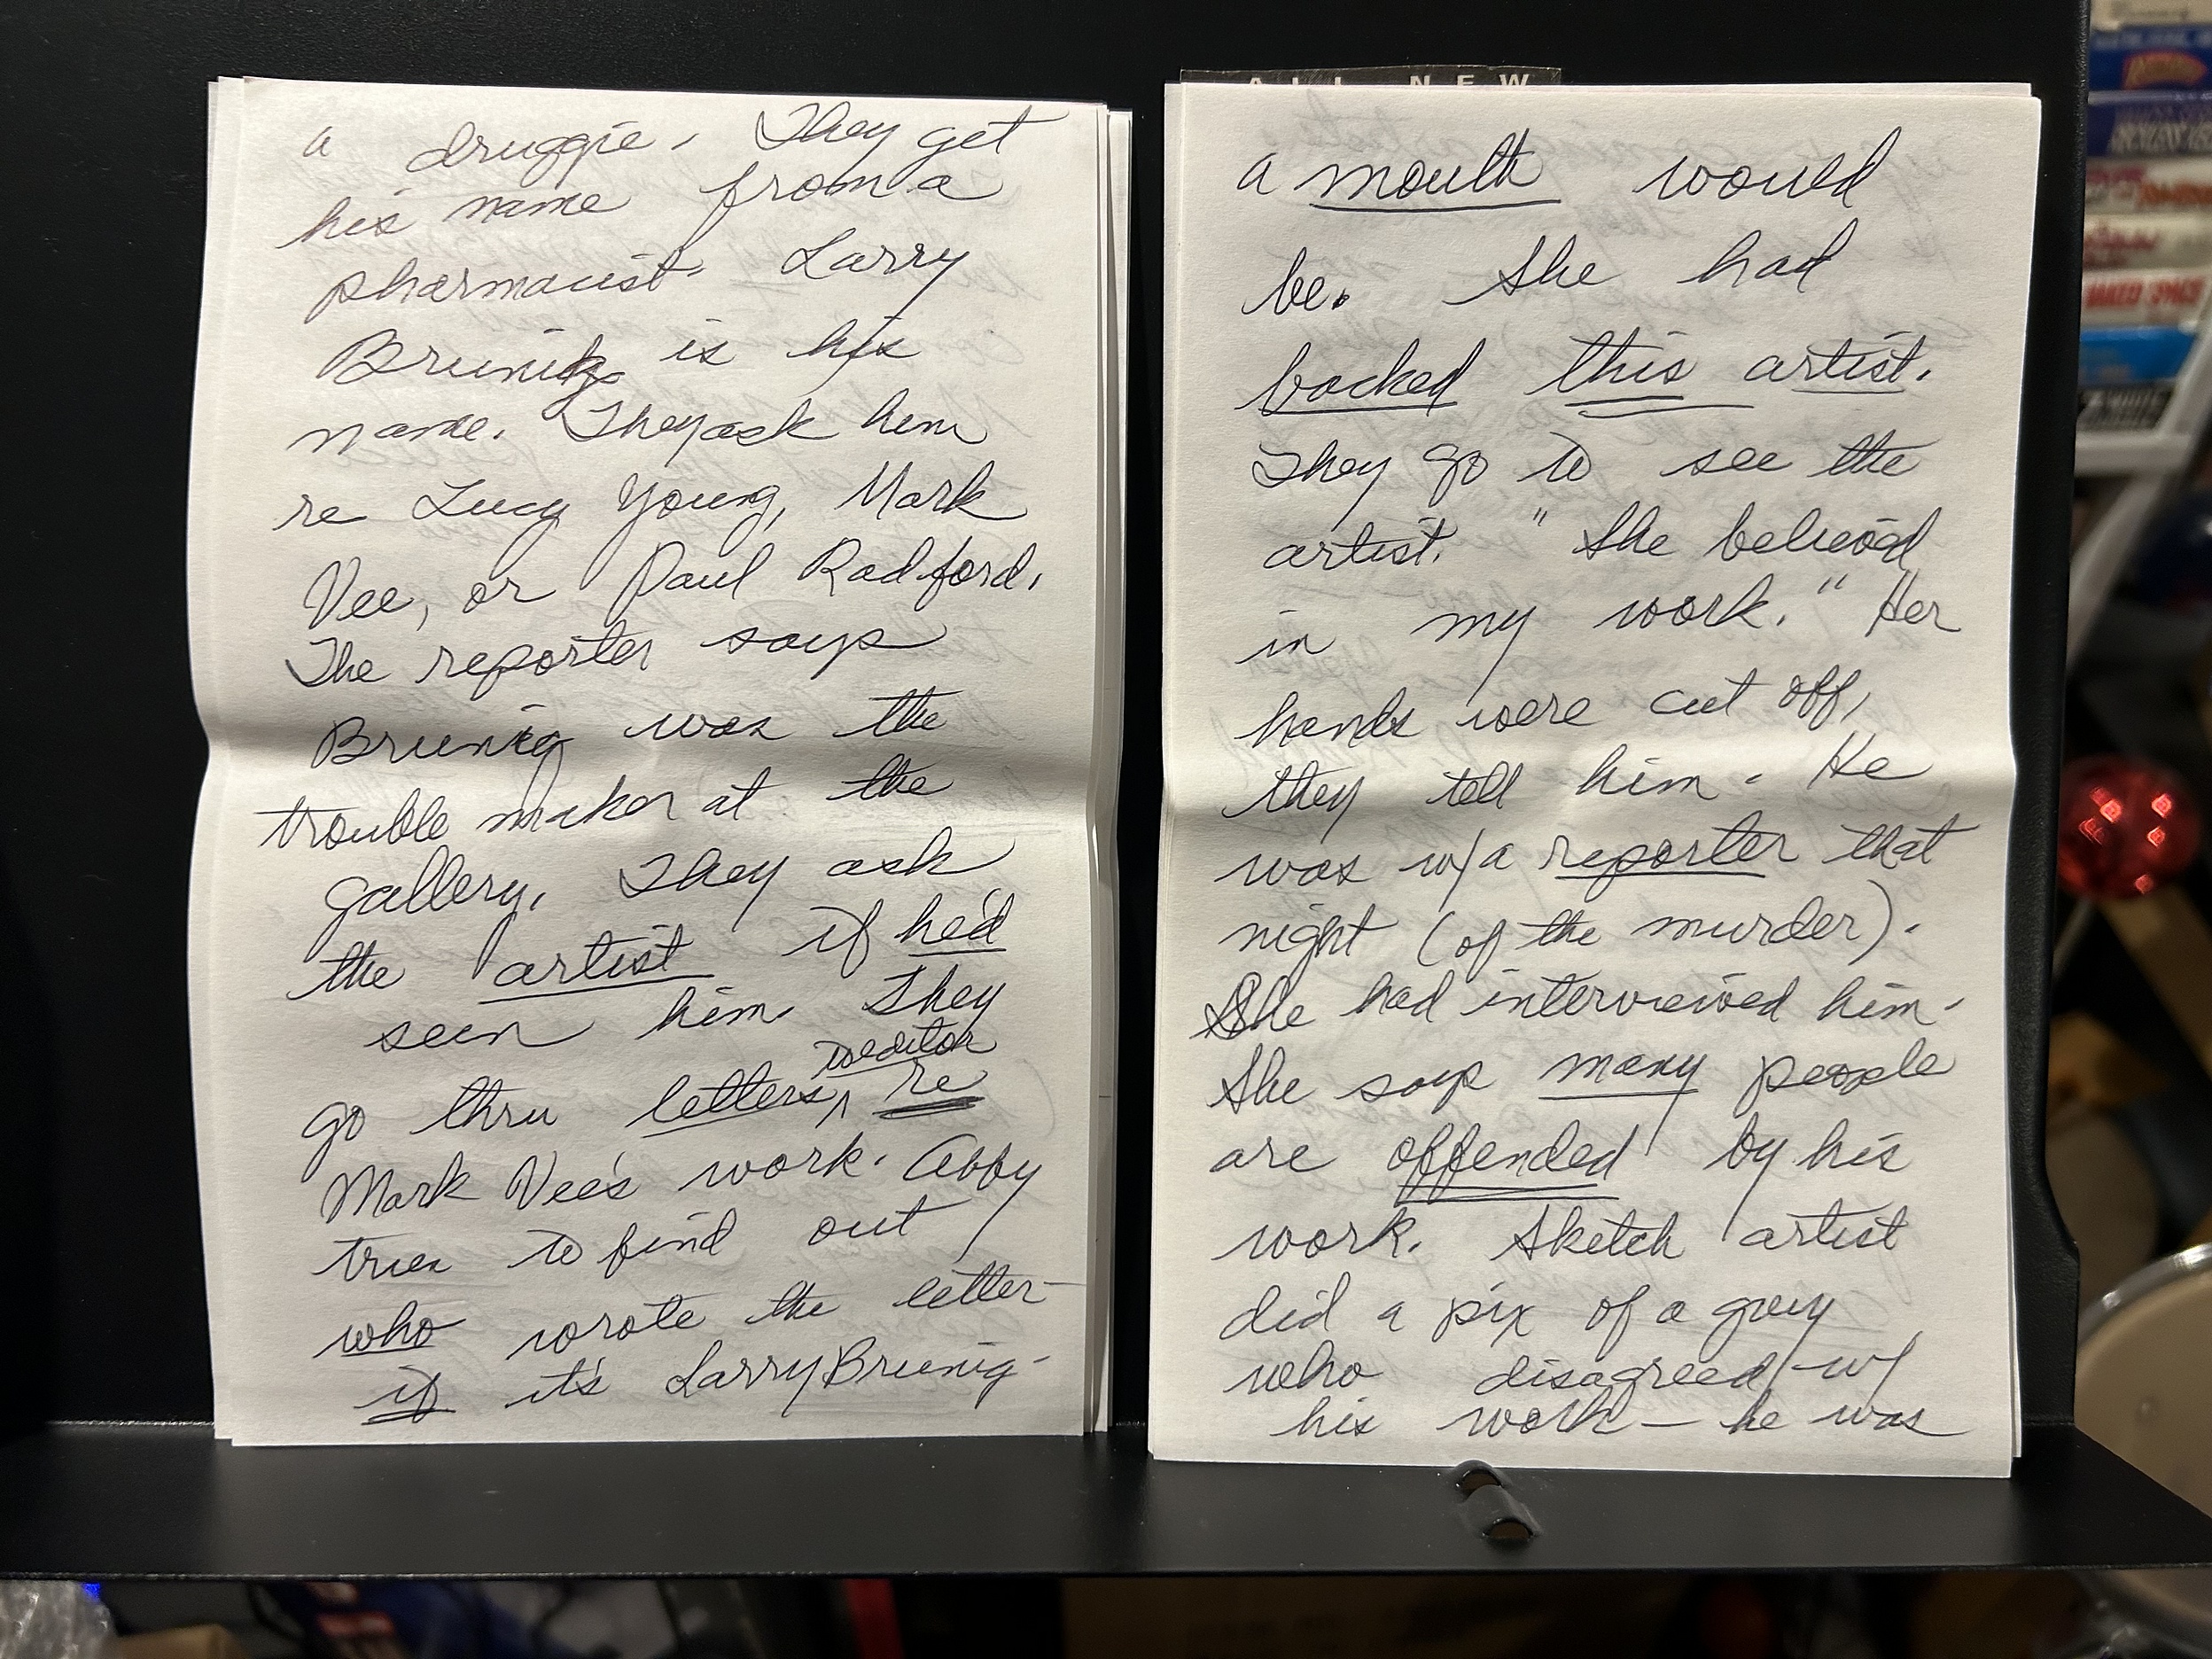 a druggie. They get
his name from a
pharmacist. Larry
Brunig is his
name. They ask him
re Lucy Young, Mark
Vee, or Paul Radford.
The reporter says
Brunig was the
trouble maker at the
gallery. They ask
the artist if he'd
seen him. They
to editor
go thru letters, ^ re
Mark Vee's work. Abby
tries to find out
who wrote the letter-
if it's Larry Brunig-
ALL NEW
a mouth would
be. She had
backed this artist.
They go to see the
artist. "She believed
in my work." Her
hands were cut off,
they tell him. He
was w/a reporter that
night (of the murder).
She had interviewed him.
She says many people
are offended by his
work. Sketch artist
did a pix of a guy
who disagreed w/
his work — he was
NAKED